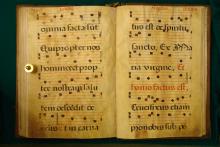 omnia facta sut
Qui propter nos
homines et prop
ter nostram salu
tem descēdit de
tus est de spiritu
sancto, Ex Maria
ria virgine, Et
homo factus est,
Crucifixus etiam
pro nobis sub pō